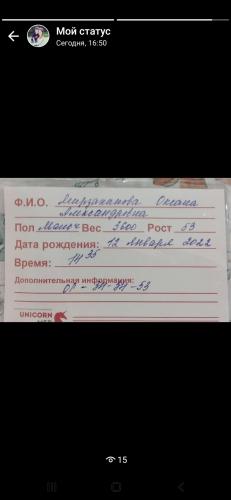 Мой статус
Сегодня, 16:50
Ф.И.О. Мирзаханова Оксана
Александровна
Пол Мальч Вес 3600 Рост 53
Дата рождения: 12 января 2022
Время: 14 35
Дополнительная информация:
UNICORN
15